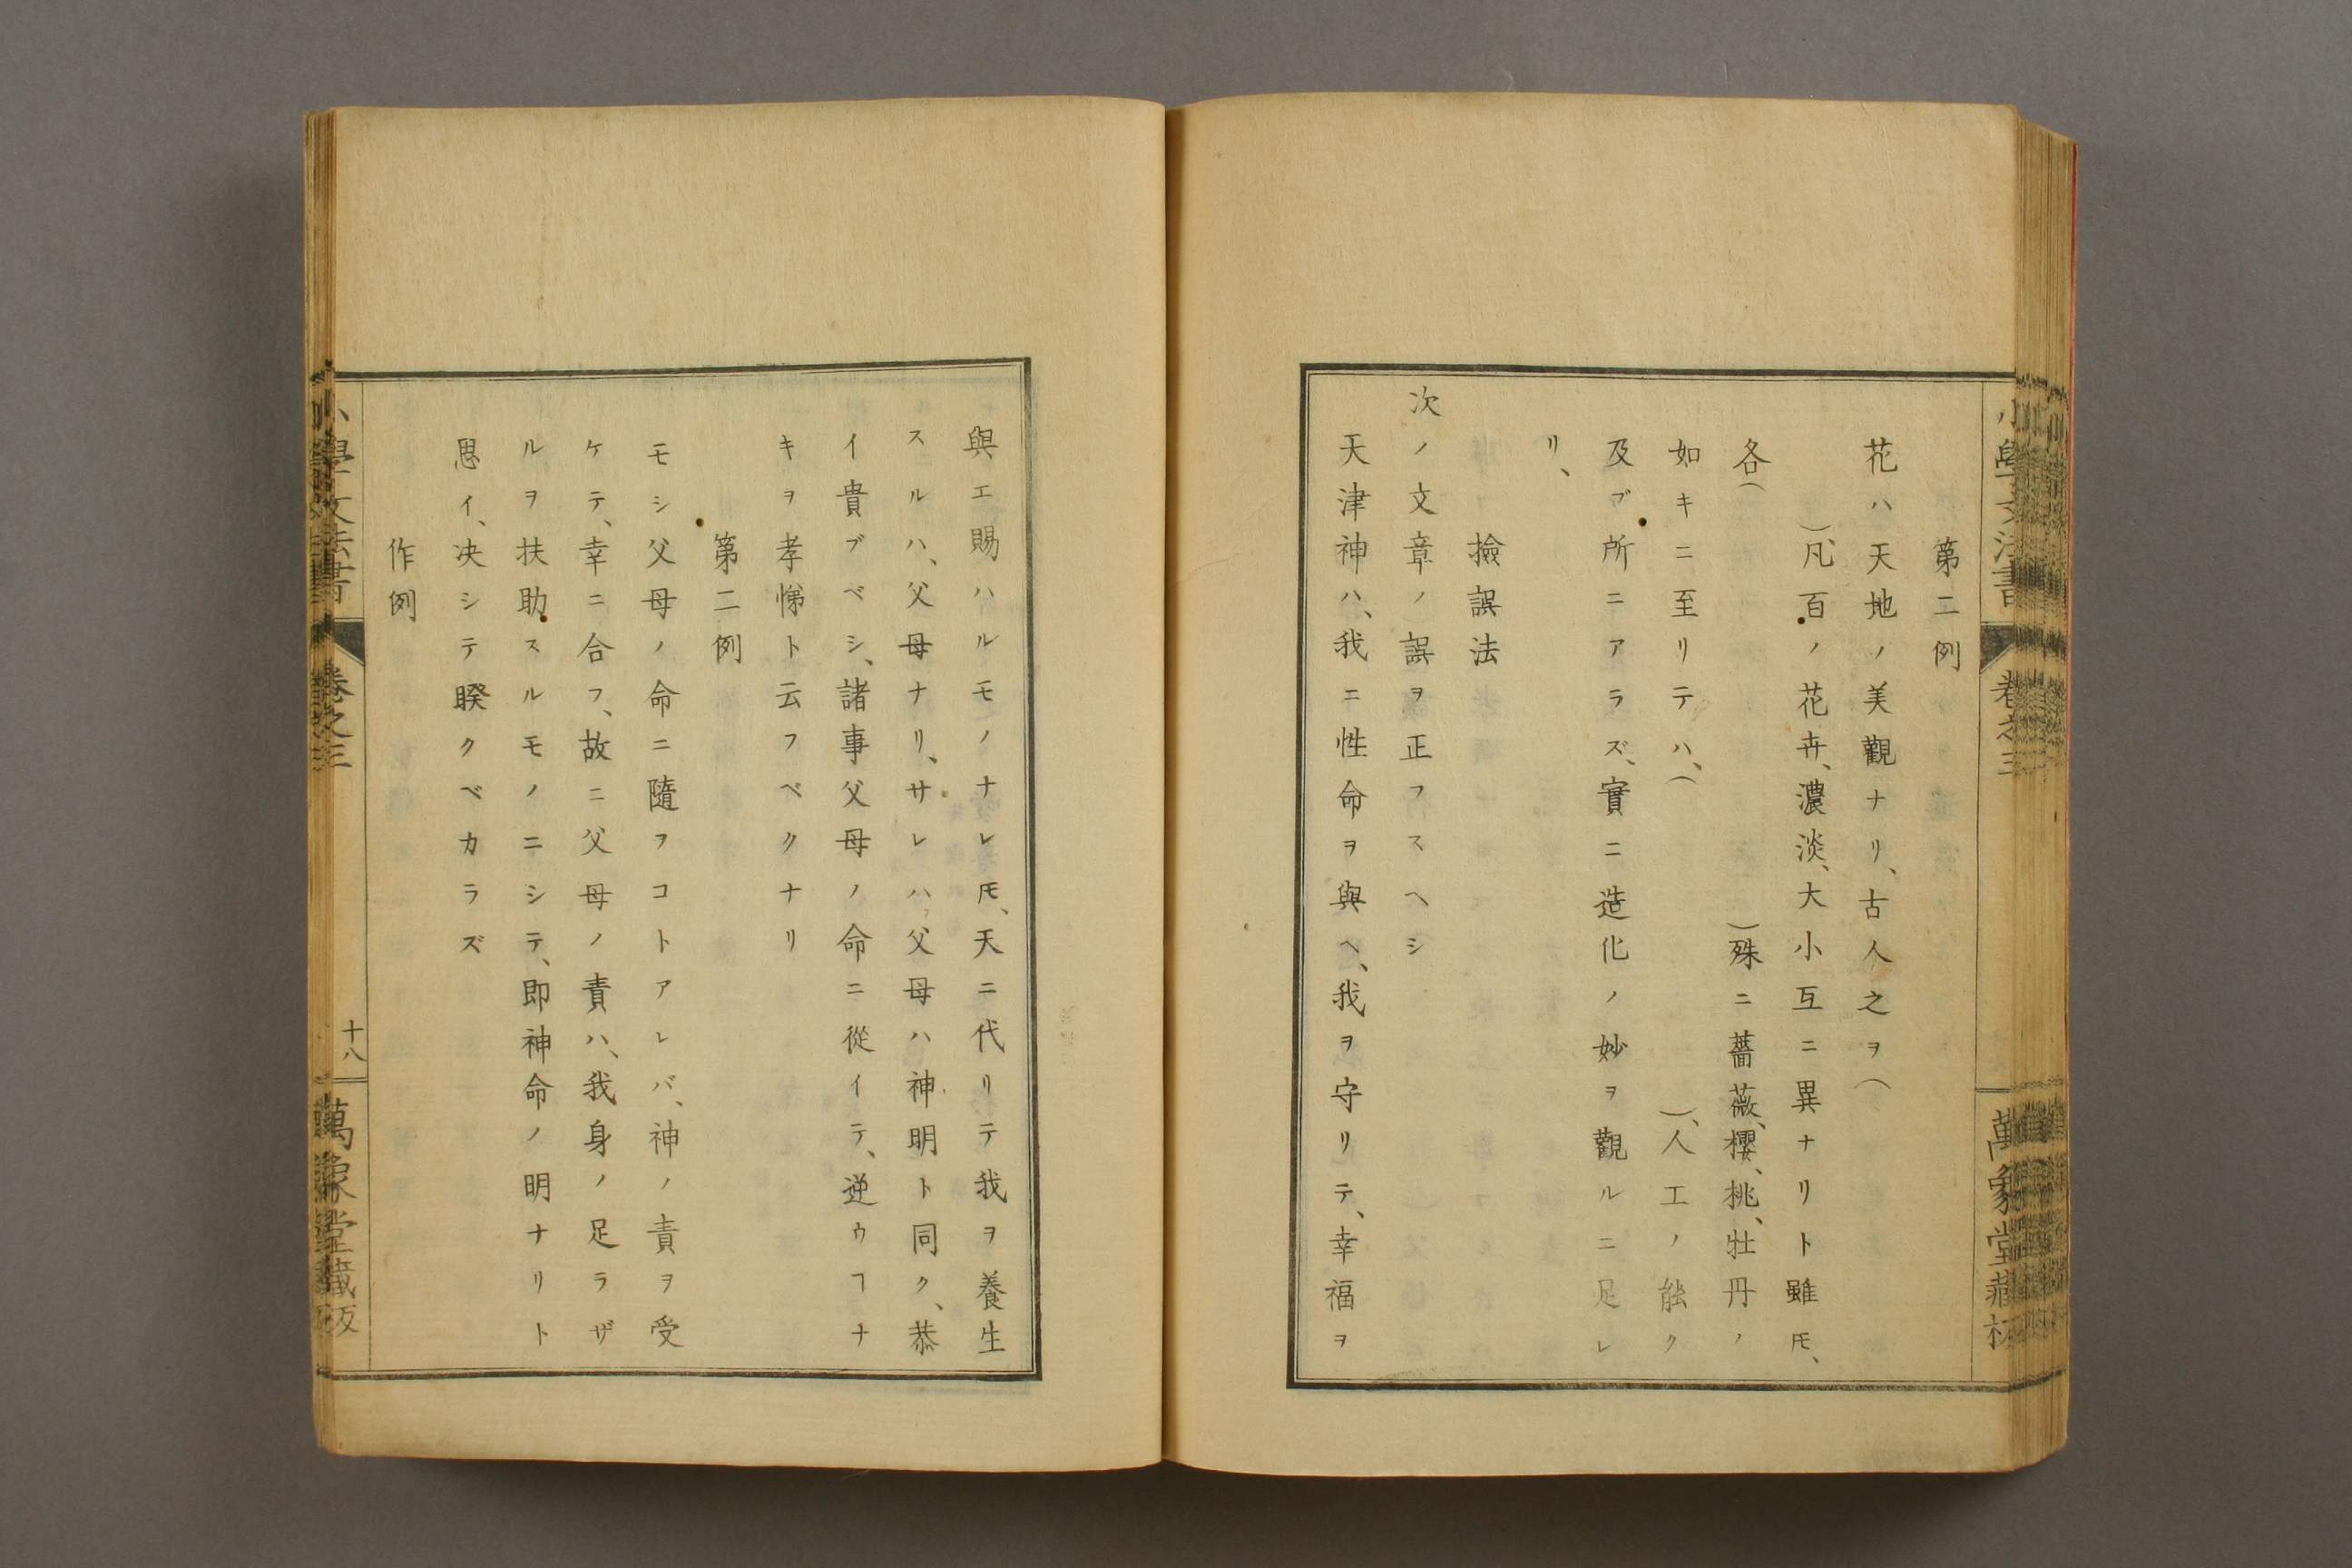 第二例
花ハ天地ノ美觀ナリ、古人之ヲ(
)凡百ノ花卉、濃淡、大小互ニ異ナリト雖𪜈、
各( )殊ニ薔薇、櫻、桃、牡丹ノ
如キニ至リテハ、( )、人工ノ能ク
及ブ所ニアラズ、實ニ造化ノ妙ヲ觀ルニ足レ
リ、
撿誤法
次ノ文章ノ誤ヲ正フスヘシ
天津神ハ、我ニ性命ヲ與ヘ、我ヲ守リテ、幸福ヲ
與エ賜ハルモノナレ𪜈、天ニ代リテ我ヲ養生
スルハ、父母ナリ、サレハ父母ハ神明ト同ク、恭
イ貴ブベシ、諸事父母ノ命ニ從イテ、逆ウヿナ
キヲ孝悌ト云フベクナリ
第二例
モシ父母ノ命ニ隨ヲフコトアレバ、神ノ責ヲ受
ケテ、幸ニ合フ、故ニ父母ノ責ハ、我身ノ足ラザ
ルヲ扶助スルモノニシテ、即神命ノ明ナリト
思イ、决シテ睽クベカラズ
作例
小學文法書 卷之三 十八 萬象堂藏板